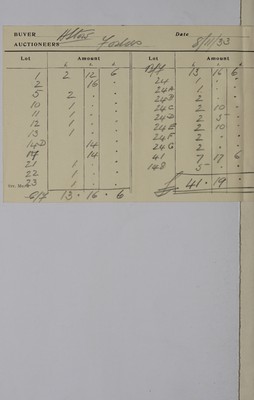 BUYER Date 8/11/33
AUCTIONEERS
Lot Amount Lot Amount
£ s. d. £ s. d.
1 2 12 6
2 16 -
5 2 - -
10 1 - -
11 1 - -
12 1 - -
13 1 - -
14D 14 -
14 -
21 1 - -
22 1 - -
23 1 - -
C/f 13 · 16 · 6
B/f 13 16 6
24 1 - -
24A 1 - -
24B 2 - -
24C 2 10 -
24D 2 5 -
24E 2 10 -
24F 2 - -
24G 2 - -
41 7 17 6
14B 5 - -
41 · 19 ·